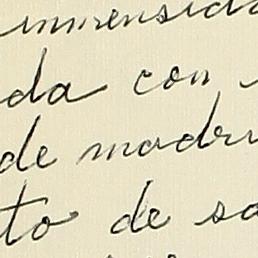 inmensida
da con
de madru
to de sa